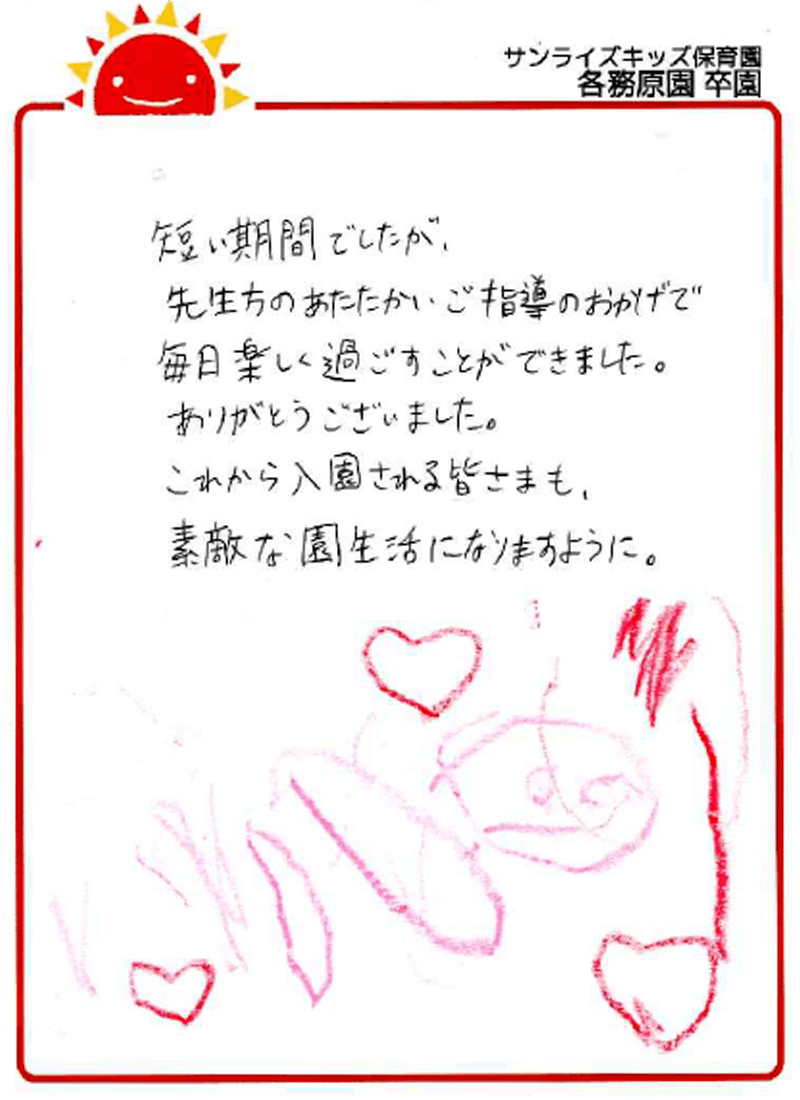 サンライズキッズ保育園
各務原園 卒園
短い期間でしたが、
先生方のあたたかいご指導のおかげで
毎日楽しく過ごすことができました。
ありがとうございました。
これから入園される皆さまも、
素敵な園生活になりますように。